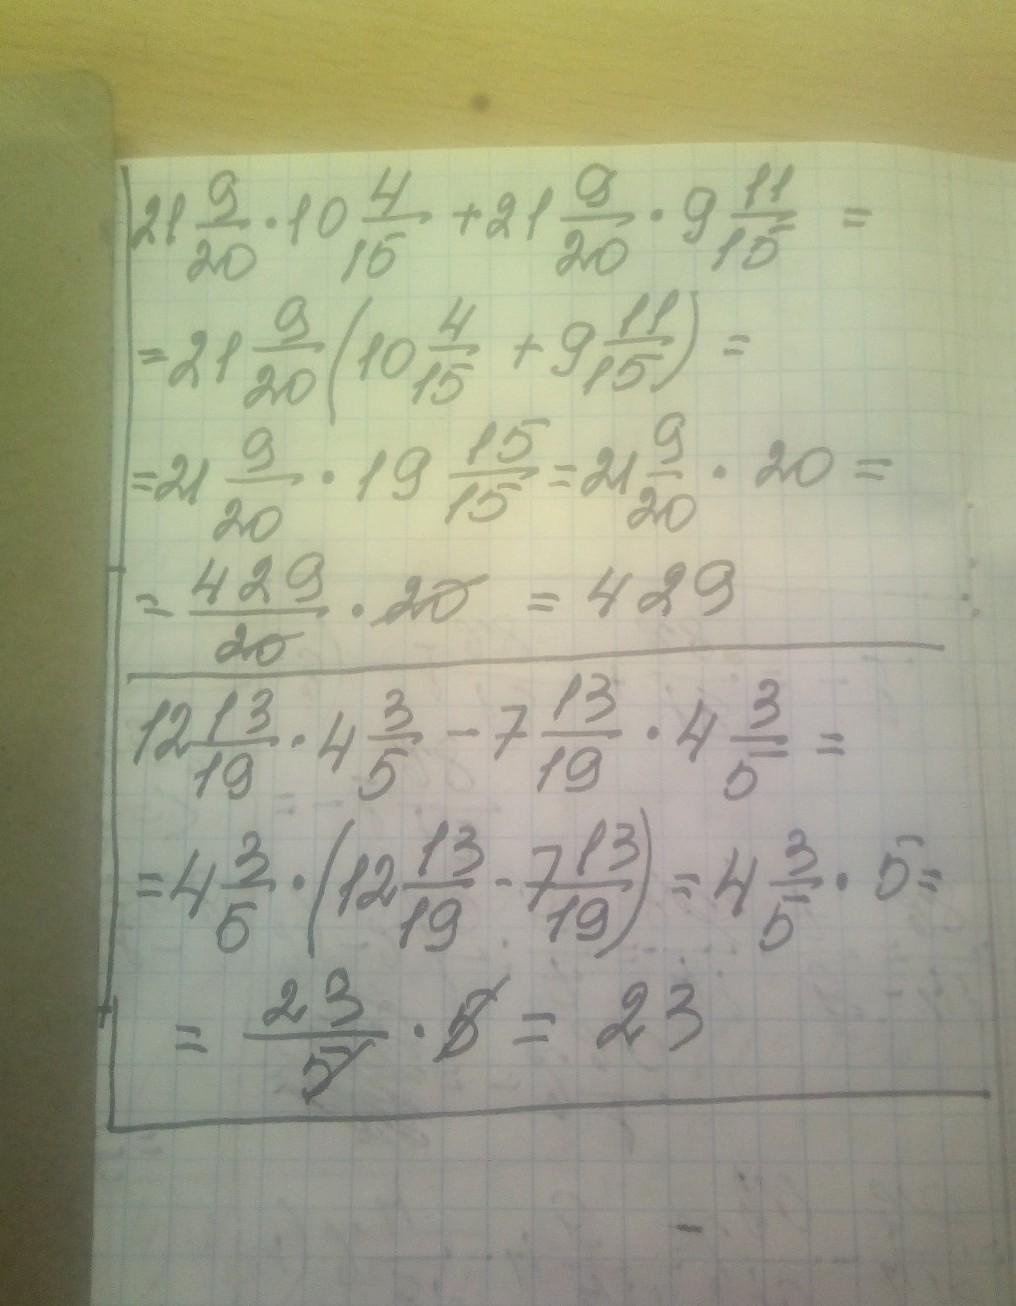 21 9/20 · 10 4/15 + 21 9/20 · 9 11/15 =
= 21 9/20 (10 4/15 + 9 11/15) =
= 21 9/20 · 19 15/15 = 21 9/20 · 20 =
= 429/20 · 20 = 429
12 13/19 · 4 3/5 - 7 13/19 · 4 3/5 =
= 4 3/5 · (12 13/19 - 7 13/19) = 4 3/5 · 5 =
= 23/5 · 5 = 23